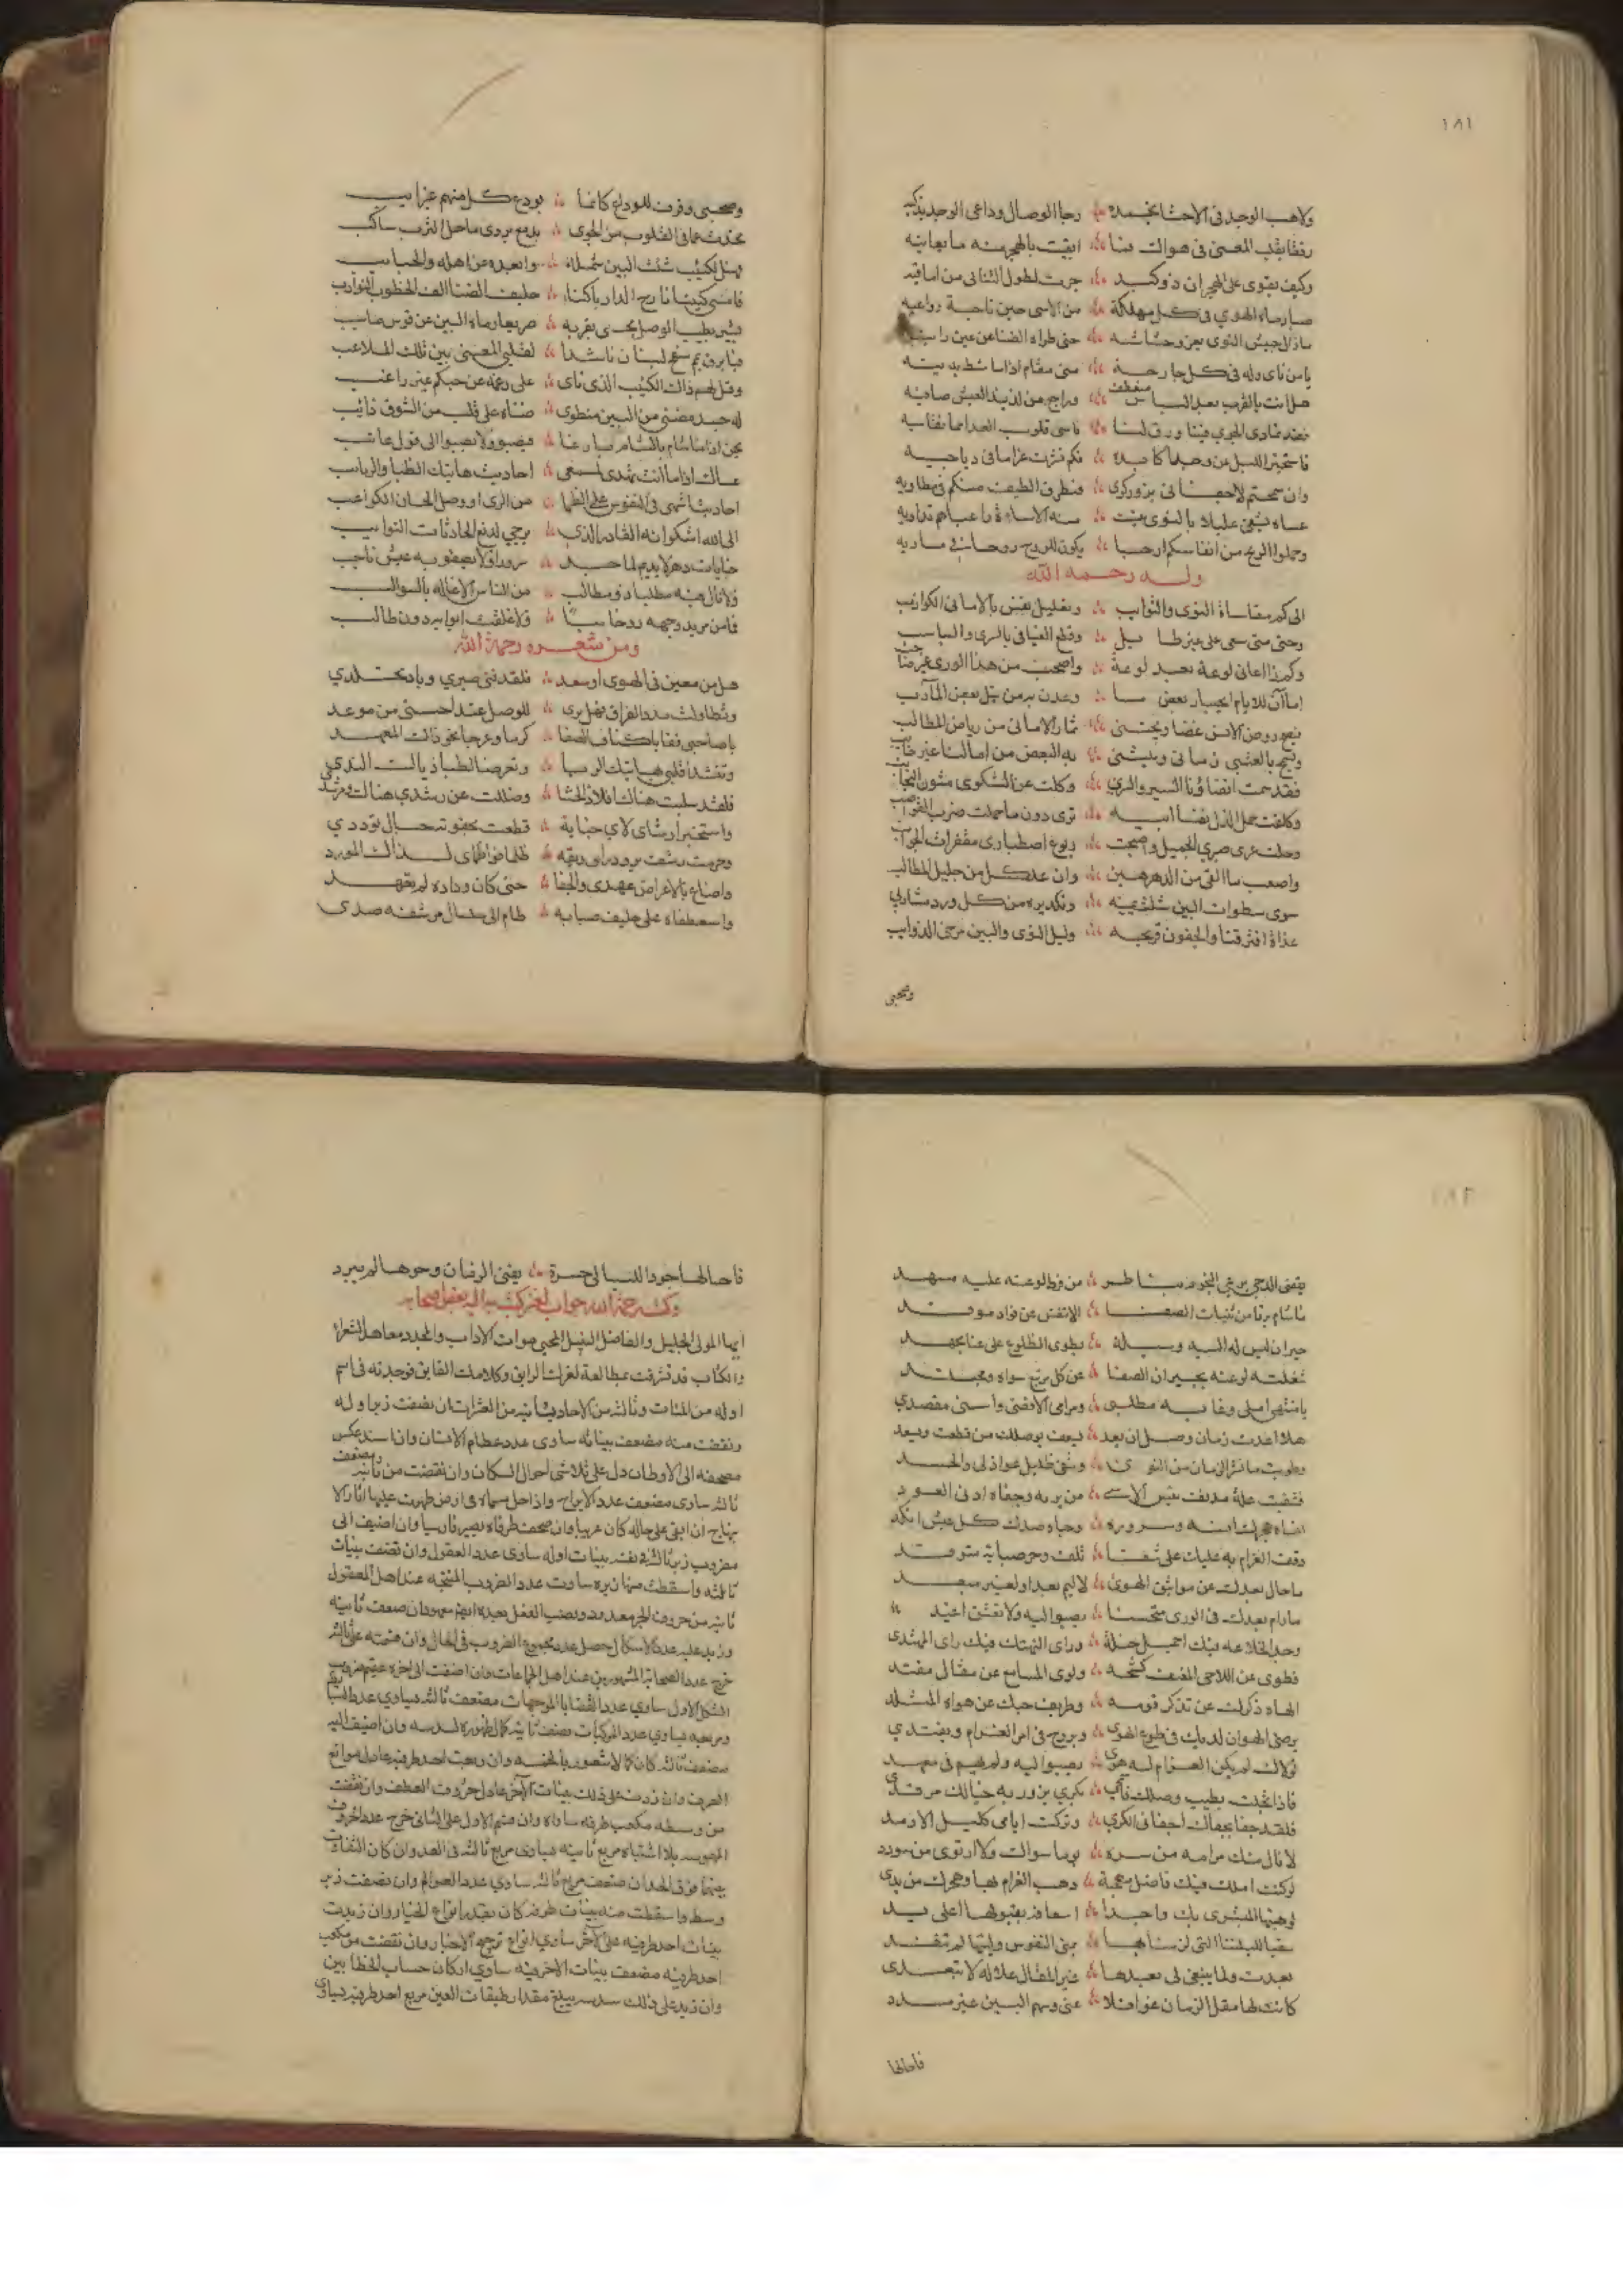 ١٨١
ولاهب الوجد في الاحشا يخمده رجا الوصال وداعي الوجد يذكيه
رفقا بقلب المعنى في هواك ضنا ابقيت بالهجر منه ما يعانيه
وكيف يقوى على الهجران ذو كبد جرت لطول التنائي من اماقيه
صار ماء الهوي في كل مهلكة من الاسى حين ناجية دواعيه
مازال جيش النوى يغزو حشاشته حتى طواه الضنا عن عين رائيه
يا من نأى وله في كل جارحة مني مقام اذا ما شط يدنيه
هل انت بالقرب بعد الياس منعطف وراجع من لذيذ العيش صافيه
فقد تمادى الجوي فينا ورق لنا قاسى قلوب العدا مما نقاسيه
فاستخبر الليل عن وحيد اكابده فكم نثرت غراما في دياجيه
وان سمحتم لاجفاني بزور كرى فنظرة الطيف منكم في مطاويه
عساه يشفي عليلا بالنوى عبثت منه الاساءة واعياهم تداويه
وحملوا الريح من انفاسكم ارجا يكون للروح روحا في مساريه
وله رحمه الله
الى كم مقاساة النوى والنوايب وتعليل نفس بالاماني الكواذب
وحتى متى سعي على غير طايل وقطع الفيافي بالسرى والسباسب
وكم ذا اعاني لوعة بعد لوعة واصحب من هذا الورى غير صاحب
اما آن للايام ايجاد بعض ما وعدن به من نيل بعض المآرب
فيغدو روض الانس غضا ويجتنى ثمار الاماني من رياض المطالب
ويسمح بالعتبى زماني وينثني به البعض من امالنا غير خايب
فقد سئمت انضاؤنا السير والسرى وكلت عن الشكوى متون النجايب
وكلفت حمل الذل نفسا ابيه ترى دون ما حملت ضرب القواضب
وحلت عرى صبري الجميل واصبحت ربوع اصطباري مقفرات الجوانب
واصعب ما القى من الدهر هين وان عد كل من جليل المطالب
سوى سطوات البين شلت يمينه وتكديره من كل ورد مشاربي
غداة افترقنا والجفون قريحه وليل النوى والبين مرخى الذوايب
وصحبي
وصحبي وقوف للوداع كانما يودع كل منهم غير ايب
تحدث عما في القلوب من الجوى بدمع يروى ماحل الترب ساكب
فمن لكئيب شتت البين شمله وابعده عن اهله والحبايب
فامسى كئيبا نازح الدار باكيا حليف الضنا الف الخطوب النوايب
يشير بطيب الوصل يحدى بقربه صريعا رماه البين عن قوس صايب
فيا برق يمم سفح لبنان ناشدا لقلبي المعنى بين تلك الملاعب
وقل لهم ذاك الكئيب الذي ناى على رغمه عن حبكم غير راغب
له جسد مضنى من البين منطوى ضناه على قلب من الشوق ذائب
يحن اذا ما شام بالشام بارقا فيصبو ولا يصبو الى قول عاتب
عساك اذا ما انت تهدى لمسمعي احاديث هاتيك الظبا والربايب
احاديثا اشهى في النفوس على الظما من الرى او وصل الحسان الكواعب
الى الله اشكو انه القادر الذي يرجي لدفع الحادثات النوايب
جنايات دهر لا يديم لماجد سرورا ولا يصفو به عيش ناجب
ولا نال فيه مطلبا ذو مطالب من الناس الا غاله بالسوالب
فامن مريد وجهه روحا سببا ولا غلقت ابوابه دون طالب
ومن شعره رحمة الله
هل من معين في الهوى او مسعد فلقد فنى صبري وباد تجلدي
وتطاولت مدد الفراق فهل يرى للوصل عندا حسنى من موعد
يا صاحبي قفا باكناف الصفا كرما وعرجا نحو ذاك المعهد
وتنشدا قلبي هاتيك الربا وتعرضا لظبا ذياك الندي
فلقد سلبت هناك افلاذ الحشا وضللت عن رشدي هناك ومرشد
واستخبرا رشاي لاي جناية قطعت بجفوته حبال توددي
وحرمت رشف برود راق ريقه ظلما فواظماي لذاك المورد
واضاع بالاعراض عهدي والجفا حتى كان وداده لم يعهد
واستعطفاه على حليف صبابه ظام الى سلسال مرشفه صدى
١٨٢
يقضي الدجى يرعى النجوم بناظر من فرط لوعته عليه مسهد
ما شام برقا من ثنيات الصفا الا تنفس عن فواد موقد
حيران ليس له اليه وسيلة يطوى الضلوع على عنا بجهد
شغلته لوعته بجيران الصفا عن كل مرتبع سواه ومعبد
يا منتهى املي وغاية مطلبي ومرامي الاقصى واسنى مقصدي
هلا اعدت زمان وصل ان يعد يعيد بوصلك من قطعت ويسعد
وطويت ما نشر الزمان من النوى وشفى غليل عواذلى والحسد
فشفيت علة مدنف يئس الاسى من برءه وجفاه ادنى العود
انساه هجرك انسه وسروره وحباه صدك كل عيش انكد
وقف الغرام به عليك على شفا تلف وحر صبابة متوقد
ما حال بعدك عن مواثيق الهوى لا ليم بعد او لغير مبعد
ما دام بعدك في الورى متحسنا يصبو اليه ولا تعشق اغيد
وجد الخلاعة فيك اجمل خلة وراى التهتك فيك راى المهتدى
فطوى عن اللاحي المعنف كشحه ولوى المسامع عن مقال مفند
الهاه ذكرك عن تذكر قومه وطريف حبك عن هواه المتلد
يرضى الهوان لديك في طوع الهوى ويروح في امر الغرام ويغتدي
لولاك لم يكن الغرام له هوى يصبو اليه ولم يهيم في معهد
فاذا بخلت بطيب وصلك فاكتب بكرى يزور به خيالك مرقدي
فلقد جفا بجفاك اجفاني الكرى وتركت ايامي كليل الارمد
لا نال منك مرامه من سره يوما سواك ولا ارتوى من مورد
لو كنت املك فيك فاضل مهجة ذهب الغرام بها وهجرك من يدي
لوهبتها للبشرى بك واجدا اسعافه بقبولها اعلى يد
سقيا لليلتنا التي لزنا بها بمنى النفوس وليتها لم تنفد
بعدت ولما ينبغي لي بعدها غير المقال علالة لا تبعدى
كانت لها مقل الزمان غوافلا عني وسهم البين غير مسدد
فاحالها
فاحالها جود الليالي حسرة يفنى الزمان وحرها لم يبرد
وكتب رحمة الله جواب لغز كتبه اليه بعض اصحابه
ايها المولى الجليل والفاضل النبيل المحيي موات الاداب والمجدد معاهد الشعراء
والكتاب قد تشرفت بمطالعة لغزك الرايق وكلامك الفايق فوجدته في اسم
اوله من المئات وثالثه من الاحاد وثانيه من العشرات ان نصفت زبر اوله
ونقصت منه مضعف بيناته ساوى عدد عظام الانسان وان اسند عكس
مصحفه الى الاوطان دل على تلاشى احوال السكان وان نقصت من ثانيه ومضعف
ثالثه ساوى مضعف عدد الابراج واذا حل سماه في ارض ظهرت عليها اثار الا
بتهاج ان ابقى على حاله كان عربيا وان صحفت طرفاه يصير فارسيا وان اضيف الى
مضروب زبر ثالثه في نفسه بينات اوله ساوى عدد العقول وان نصفت بينات
ثالثه واسقطت منها زبره ساوت عدد الضروب المنتجه عند اهل المعقول
ثانيه من حروف الجر معدود ونصب الفعل بعده ايضا معهود ان ضعف ثانيه
وزيد عليه عدد الاشكال حصل عدد مجموع الضروب في الحال وان قسمته على ثالثه
خرج عدد الصحابة المشهورين عند اهل الجماعات وان اضفت الى اخره عقيم ضروب
الشكل الاول ساوى عدد القضايا الموجهات مضعف ثالثه يساوي عدد البسايط
ومربعه يساوي عدد المركبات نصف ثانيه كالظهور لسدسه وان اضيف اليه
مضعف ثالثه كان كالاشعور بالخمسه وان ربعت احد طرفيه عادل موانع
الصرف وان زدت على ذلك بينات الآخر عادل حروف العطف وان نقصت
من وسطه مكعب طرفه ساواه وان قسم الاول على الثاني خرج عدد الحروف
المهموسه بلا اشتباه مربع ثانيه يساوى مربع ثالثه في العد وان كان التفاوت
بينهما فوق الحد ان ضعف مربع ثالثه ساوي عدد العوالم وان نصفت زبر
وسطه واسقطت منه بينات طرفه كان بقدر انواع الخيار وان زيدت
بينات احد طرفيه على الآخر ساوي انواع ترجيح الاخبار وان نقصت من مكعب
احد طرفيه مضعف بينات الاخر فيه ساوي اركان حساب الخطأين
وان زيد على ذلك سدسه يبلغ مقدار طبقات العين مربع احد طرفيه يساوى